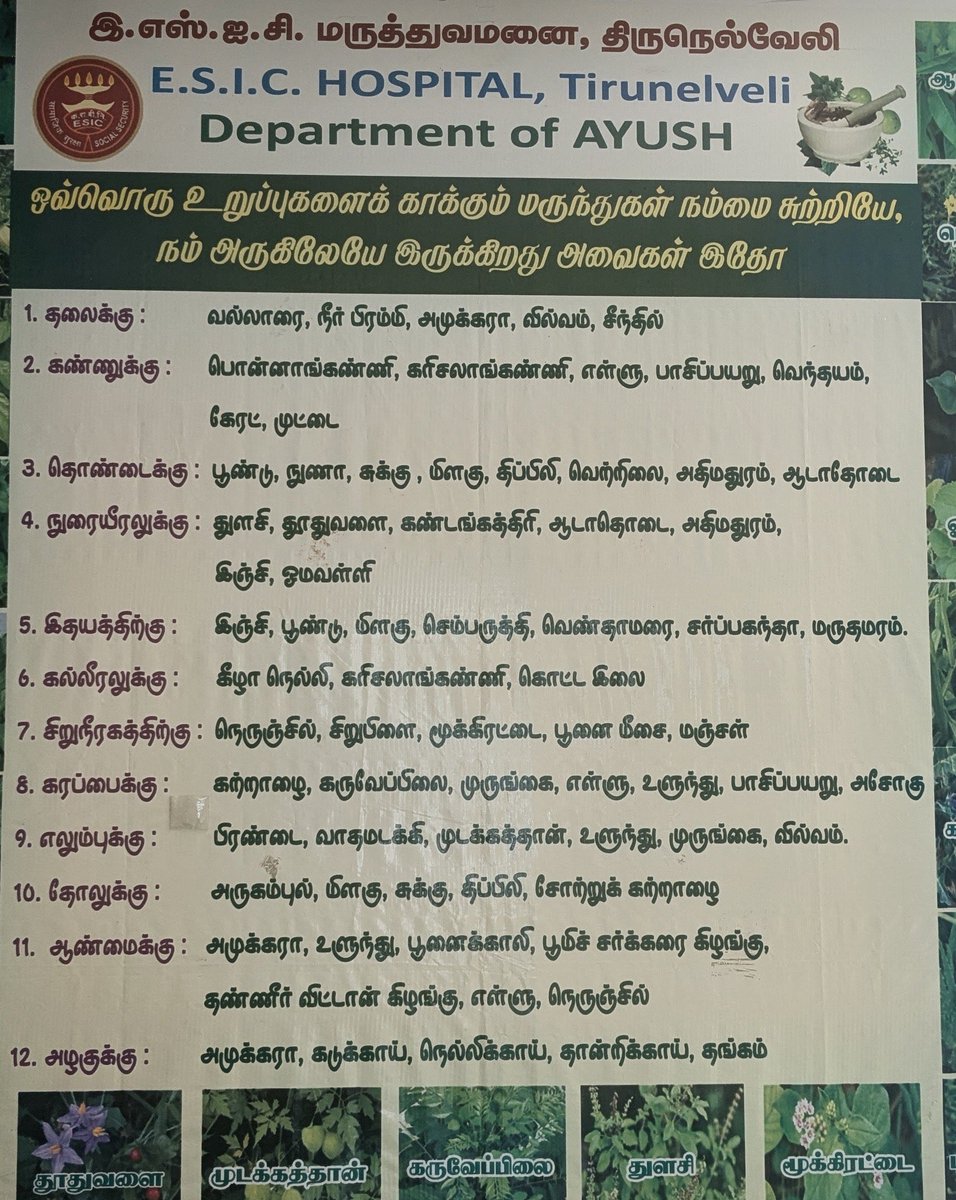 இ.எஸ்.ஐ.சி. மருத்துவமனை, திருநெல்வேலி
E.S.I.C. HOSPITAL, Tirunelveli
Department of AYUSH
ESIC
SOCIAL SECURITY
ஒவ்வொரு உறுப்புகளைக் காக்கும் மருந்துகள் நம்மை சுற்றியே,
நம் அருகிலேயே இருக்கிறது அவைகள் இதோ
1. தலைக்கு : வல்லாரை, நீர் பிரம்மி, அமுக்கரா, வில்வம், சீந்தில்
2. கண்ணுக்கு : பொன்னாங்கண்ணி, கரிசலாங்கண்ணி, எள்ளு, பாசிப்பயறு, வெந்தயம்,
கேரட், முட்டை
3. தொண்டைக்கு : பூண்டு, நுணா, சுக்கு , மிளகு, திப்பிலி, வெற்றிலை, அதிமதுரம், ஆடாதோடை
4. நுரையீரலுக்கு : துளசி, தூதுவளை, கண்டங்கத்திரி, ஆடாதொடை, அதிமதுரம்,
இஞ்சி, ஓமவள்ளி
5. இதயத்திற்கு : இஞ்சி, பூண்டு, மிளகு, செம்பருத்தி, வெண்தாமரை, சர்ப்பகந்தா, மருதமரம்.
6. கல்லீரலுக்கு : கீழா நெல்லி, கரிசலாங்கண்ணி, கொட்ட இலை
7. சிறுநீரகத்திற்கு : நெருஞ்சில், சிறுபிளை, மூக்கிரட்டை, பூனை மீசை, மஞ்சள்
8. கரப்பைக்கு : கற்றாழை, கருவேப்பிலை, முருங்கை, எள்ளு, உளுந்து, பாசிப்பயறு, அசோகு
9. எலும்புக்கு : பிரண்டை, வாதமடக்கி, முடக்கத்தான், உளுந்து, முருங்கை, வில்வம்.
10. தோலுக்கு : அருகம்புல், மிளகு, சுக்கு, திப்பிலி, சோற்றுக் கற்றாழை
11. ஆண்மைக்கு : அமுக்கரா, உளுந்து, பூனைக்காலி, பூமிச் சர்க்கரை கிழங்கு,
தண்ணீர் விட்டான் கிழங்கு, எள்ளு, நெருஞ்சில்
12. அழகுக்கு : அமுக்கரா, கடுக்காய், நெல்லிக்காய், தான்றிக்காய், தங்கம்
தூதுவளை
முடக்கத்தான்
கருவேப்பிலை
துளசி
மூக்கிரட்டை